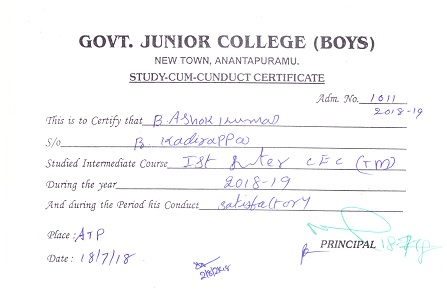 GOVT. JUNIOR COLLEGE (BOYS)
NEW TOWN, ANANTAPURAMU.
STUDY-CUM-CUNDUCT CERTIFICATE
Adm. No. 1011
2018-19
This is to Certify that B. Ashok kumar
S/o B. Kadirappa
Studied Intermediate Course Ist Inter CEC (TM)
During the year 2018-19
And during the Period his Conduct satisfactory
Place: ATP
PRINCIPAL
Date: 18/7/18